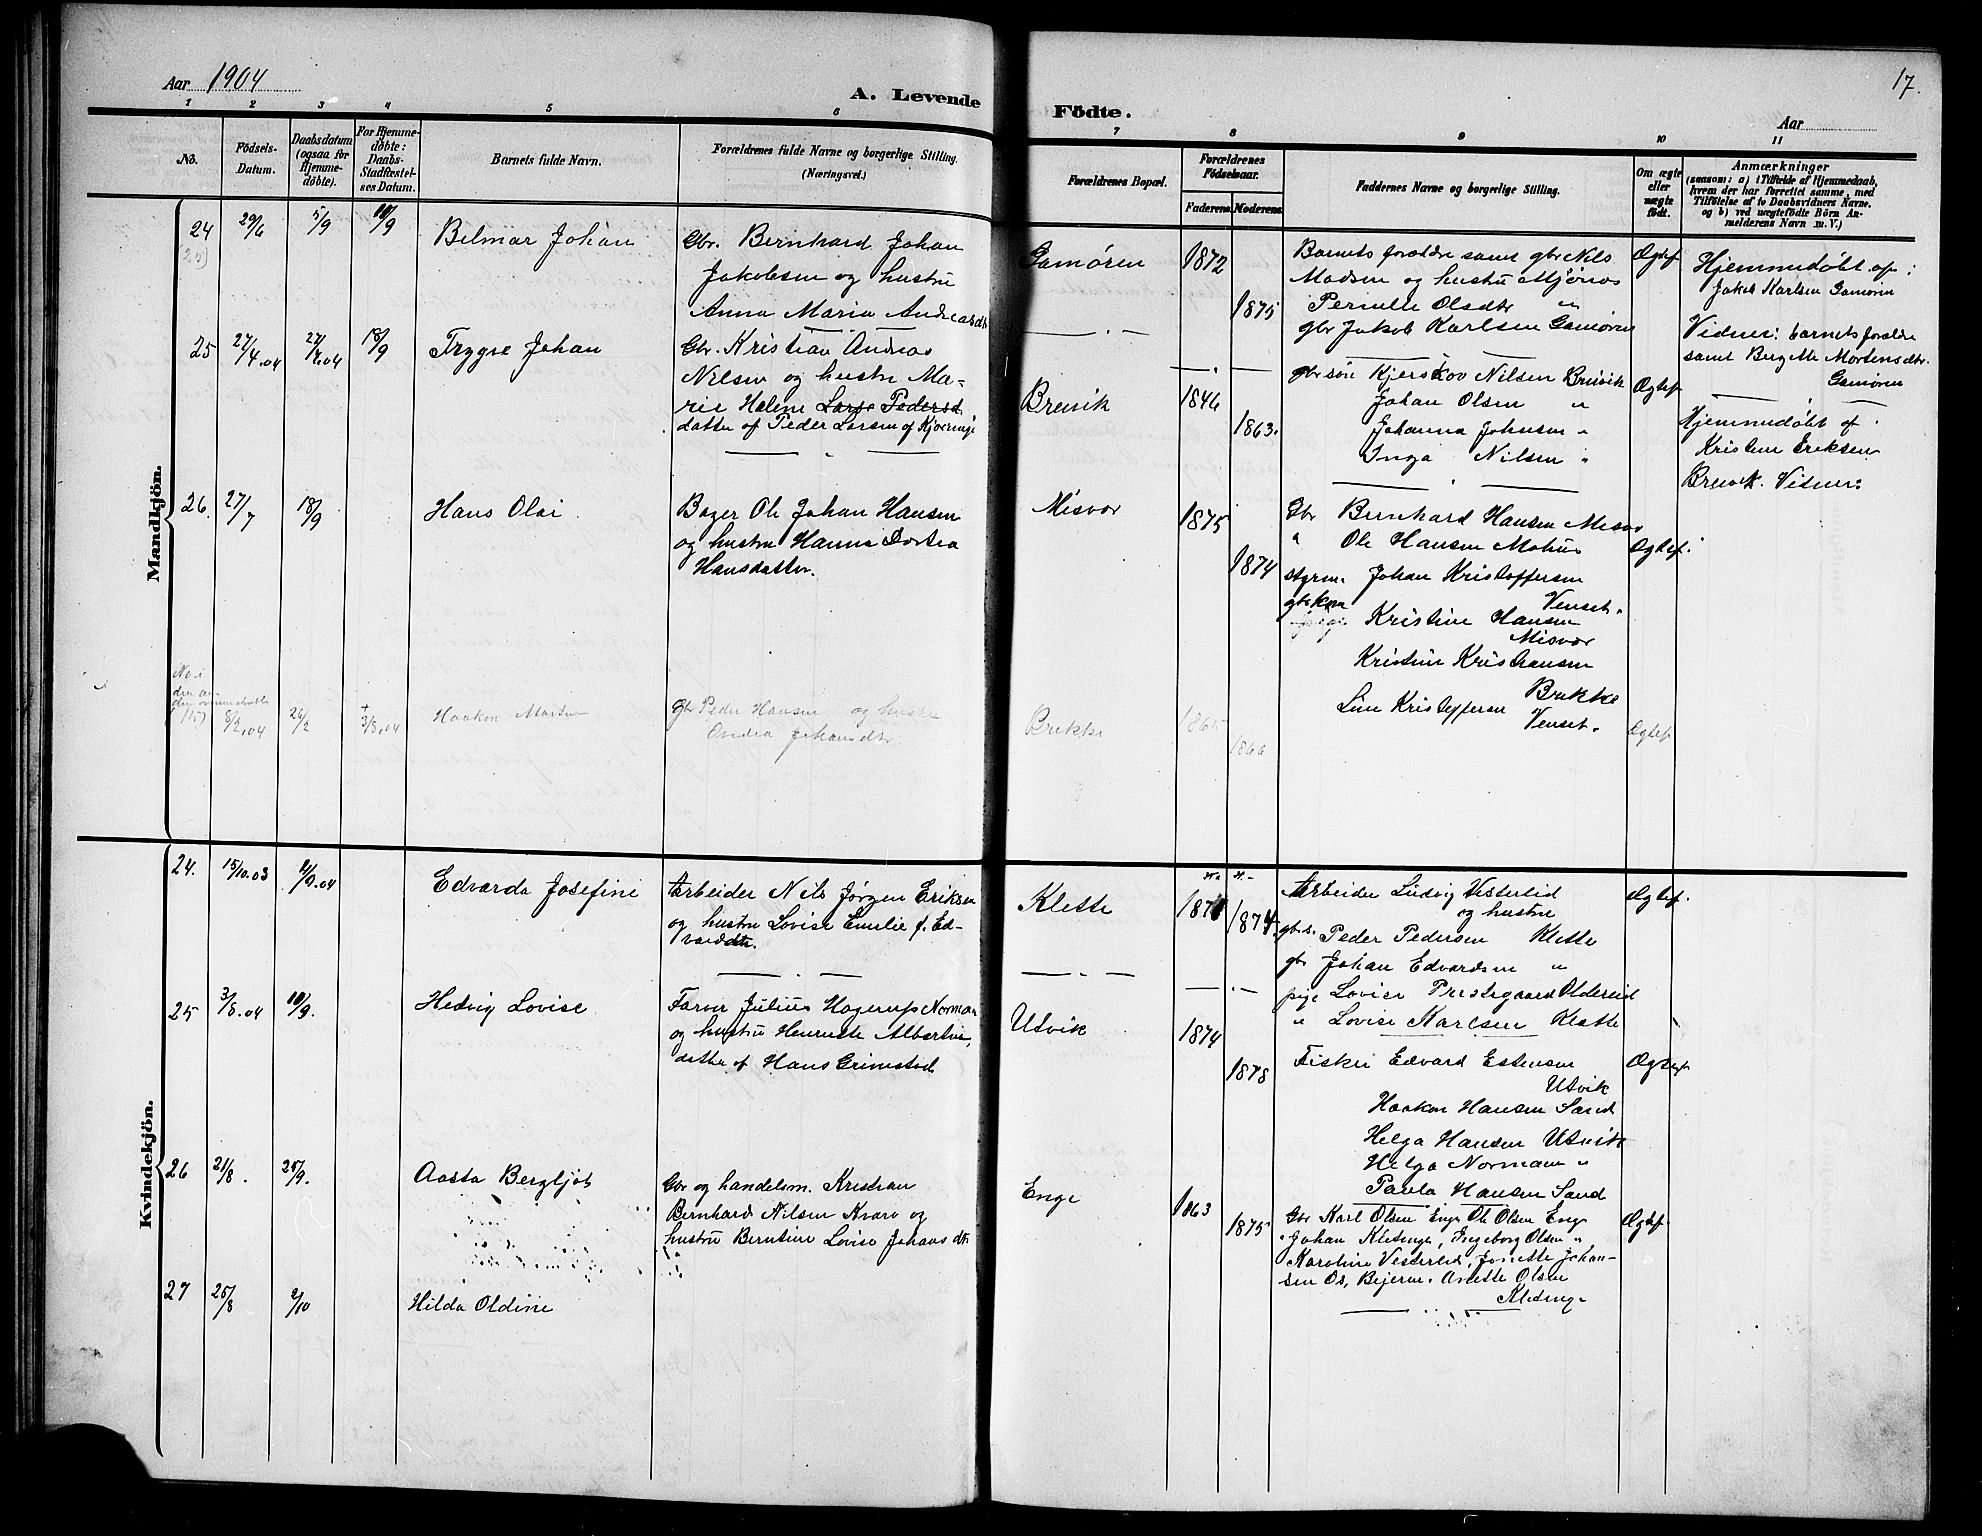 Aar 1904
A. Levende
Födte.
Aar
17.
1 2 3 4 5 6 7 8 9 10 11
No.
Födsels-
Datum.
Daabsdatum
(ogsaa for
Hjemme-
döbte).
For Hjemme-
döbte:
Daabs-
Stadfæstel-
ses Datum.
Barnets fulde Navn.
Forældrenes fulde Navne og borgerlige Stilling.
(Næringsvei.)
Forældrenes Bopæl.
Forældrenes
Födselsaar.
Faderens.
Moderens.
Faddernes Navne og borgerlige Stilling.
Om ægte
eller
uægte
födt.
Anmærkninger
(saasom: a) i Tilfælde af Hjemmedaab,
hvem der har forrettet samme, med
Tilföielse af to Daabsvidners Navne,
og b) ved uægtefödte Börn An-
melderens Navn m. V.)
Mandkjön.
24 29/6 5/9 18/9 Belmar Johan
(25)
Gbr. Bernhard Johan
Jakobsen og hustru
Anna Maria Andreasdt
Gamøren 1872
1875
Barnets forældre samt gbr Nils
Madsen og hustru Mjønes
Pernille Olsdtr "
gbr Jakob Karlsen Gamøren
Ægtef
Hjemmedøbt af
Jakob Karlsen Gamøren
Vidner: barnets forældre
samt Bergitte Mortensdtr.
Gamøren
25 27/4.04 18/9 Trygve Johan
Gbr. Kristian Andreas
Nilsen og hustru Ma-
rie Helene Lars Pedersd
datter af Peder Larsen af Kjøeringø
Breivik 1846
1863.
gbr søn Kjerskov Nilsen Breivik
Johan Olsen "
Johanna Johnsen "
Inga Nilsen "
Ægtef
Hjemmedøbt af
Kristine Eriksen
Breivik. Vidner:
26. 27/7 18/9 Hans Olai
Bager Ole Johan Hansen
og hustru Hanna Dortea
Hansdatter.
Misvær 1875
1874
Gbr Bernhard Hansen Misvær
" Ole Hansen Mohus
styrm. Johan Kristoffersen
Venset.
gbrkon Kristine Hansen
Misvær
Kristine Kristiansen
Brekke
Line Kristoffersen
Venset.
Ægtef.
No i
8/2.04 26/2 + 3/5.04 Haakon Martin
gbr Peder Hansen og hustru
Andrea Johansdtr.
Brekke 1865
1866
Ægtef
Kvindekjön.
24. 15/10.03 11/9.04 Edvarda Josefine
Arbeider Nils Jørgen Eriksen
og hustru Lovise Emelie f. Ed-
vardsdtr.
Klette
1874.
Arbeider Ludvig Vesterlid
og hustru
gbs. Peder Pedersen Klette
gbr Johan Edvardsen "
pige Lovise Prestegaard Oldereid
" Lovise Karlsen Klette
Ægtef.
25 3/5.04 18/9. Hedvig Lovise
Farver Julius Hagerup Norman
og hustru Henriette Albertine,
datter af Hans Grimstad
Utvik 1874
1878
Fisker Edvard Estensen
Utvik
Haakon Hansen Sand
Helga Hansen Utvik
Helga Normann "
Paula Hansen Sand
Ægtef
26 21/8. 25/9. Aasta Bergljot
Gbr og handelsm. Kristian
Bernhard Nilsen Kvarv og
hustru Berntine Lovise Johansdtr
Enge 1863
1875
Gbr Karl Olsen Enge Ole Olsen Enge
" Johan Kletinge, Ingeborg Olsen "
Karoline Vesterlid, Jonette Johan-
sen Os, Bejern. Anette Olsen
Kledenge
Ægtef
27 25/8 2/10 Hilda Oldine